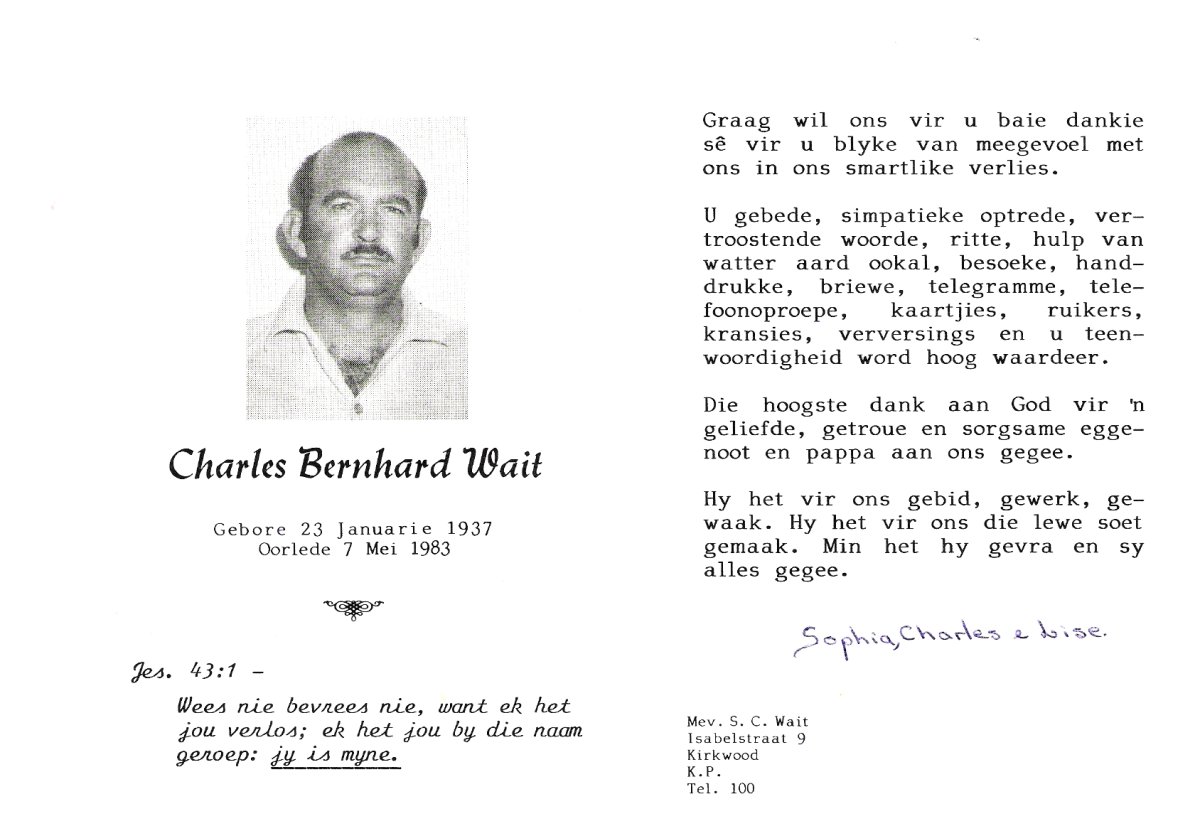 Charles Bernhard Wait
Gebore 23 Januarie 1937
Oorlede 7 Mei 1983
Jes. 43:1 –
Wees nie bevrees nie, want ek het
jou verlos; ek het jou by die naam
geroep: jy is myne.
Graag wil ons vir u baie dankie
sê vir u blyke van meegevoel met
ons in ons smartlike verlies.
U gebede, simpatieke optrede, ver-
troostende woorde, ritte, hulp van
watter aard ookal, besoeke, hand-
drukke, briewe, telegramme, tele-
foonoproepe, kaartjies, ruikers,
kransies, verversings en u teen-
woordigheid word hoog waardeer.
Die hoogste dank aan God vir 'n
geliefde, getroue en sorgsame egge-
noot en pappa aan ons gegee.
Hy het vir ons gebid, gewerk, ge-
waak. Hy het vir ons die lewe soet
gemaak. Min het hy gevra en sy
alles gegee.
Sophia, Charles e Lise.
Mev. S. C. Wait
Isabelstraat 9
Kirkwood
K.P.
Tel. 100